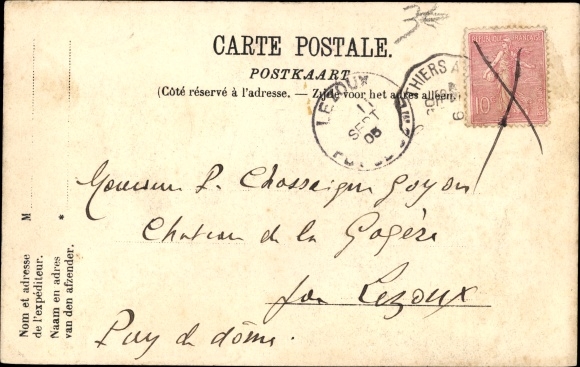 CARTE POSTALE.
POSTKAART
(Côté réservé à l'adresse. — Zijde voor het adres alleen
REPUBLIQUE FRANÇAISE
10
THIERS A
LEZOUX
11
SEPT
05
Monsieur P. Chassaigne Goyon
Chateau de la Gagère
par Lezoux
Puy de dôme.
M
*
Nom et adresse
de l'expéditeur.
Naam en adres
van den afzender.